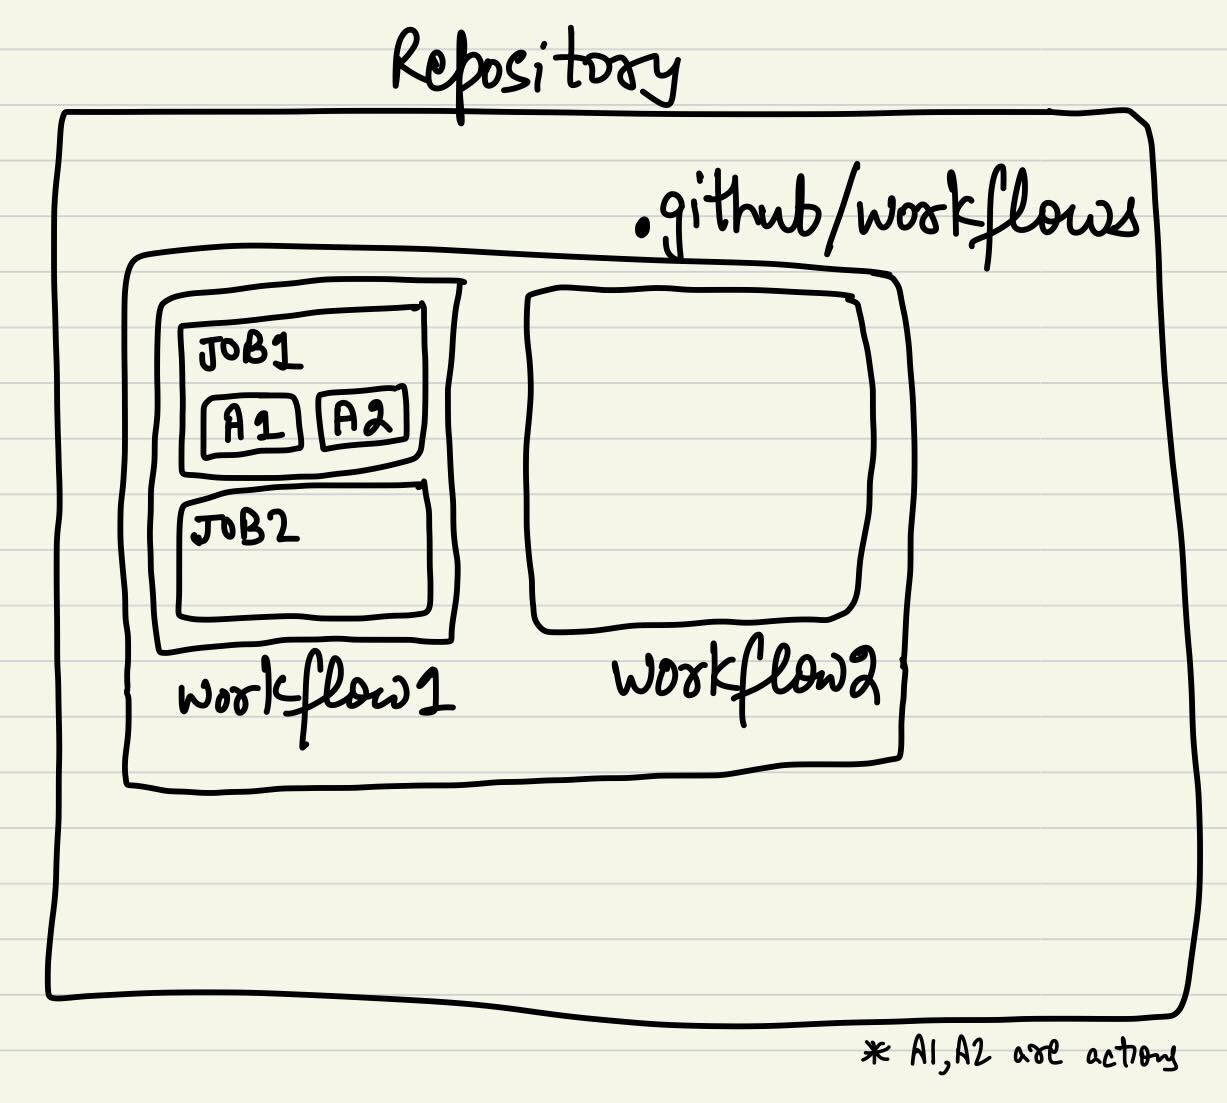 Repository
.github/workflows
JOB1
A1 A2
JOB2
workflow1
workflow2
* A1,A2 are actions